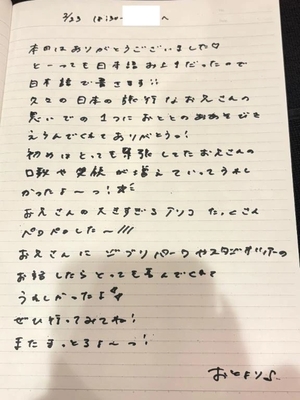 2/23 18:30〜 へ
本日はありがとうございました♡
とーっても日本語お上手だったので
日本語で書きます!!
久々の日本の旅行なお兄さんの
思いでの1つにおととのおあそびを
えらんでくれてありがとうっ!
初めはとっても緊張してたお兄さんの
口数や笑顔が増えていってうれし
かったよ〜っ!
お兄さんの大きすぎるアソコたっくさん
ペロペロした〜///
お兄さんにジブリパークやスタジオ
お話したらとっても喜んでくれて
うれしかったよ
ぜひ行ってみてね!
またきっとろよ〜っ!
おとより